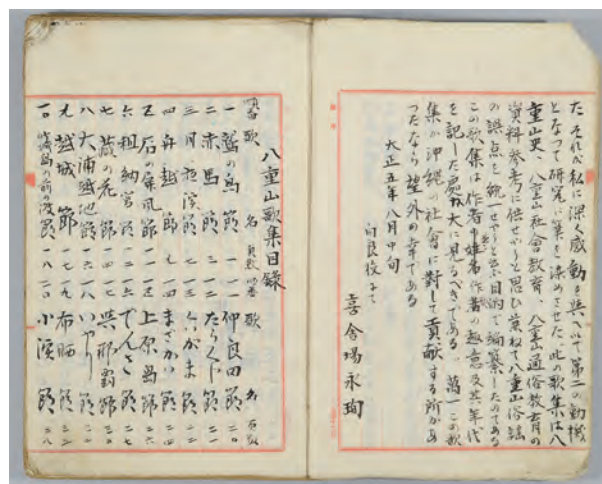 た、それが私に深く感動を與へいて第二の動機
となつて研究に筆を染めさせた、此の歌集は八
重山史、八重山社會教育、八重山通俗教育の
資料参考に供せやうと思ひ兼ねて八重山俗謡
の誤点を統一せやうと云ふ目的で編纂したのである
この歌集は作者の姓名作者の趣意及其年代
を記した處が大に見るべきである、萬一この歌
集が沖縄の社會に對して貢献する所があ
つたなら望外の幸である
大正五年八月中旬
白良校にて
喜舎場永珣
八重山歌集目録
番 歌 名 頁数 番 歌 名 頁数
一 鷲の鳥節 一 一一 仲良田節 二〇
二 赤馬節 一二 節 二一
三 月 節 一三 がま節
四 舟越節 一四 まざかい節 二四
五 石の屏風節 一五 上原島節 二六
六 祖納岳節 一六 でんさ節 二七
七 蔵の花節 一七 呉那覇節
八 大浦越地節 一八 いやり節
九 越城節 一九 布晒節
一〇 の前の渡節 二〇 小濱節 三八